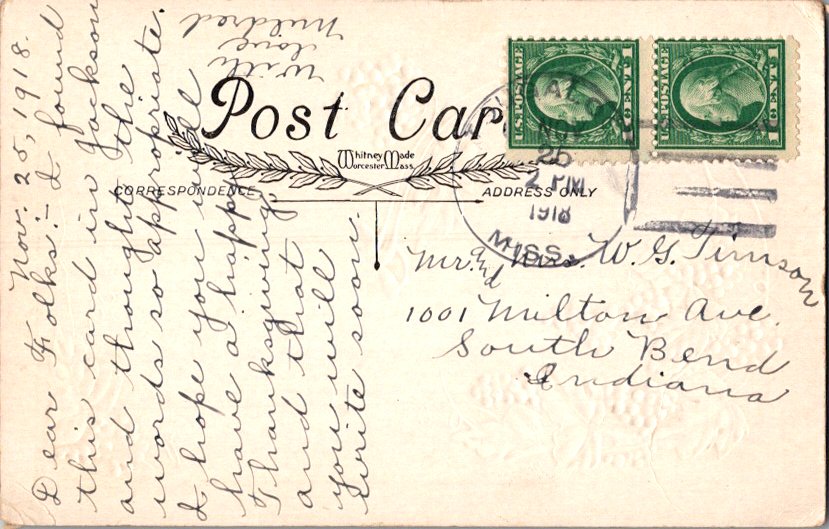 Post Car
Whitney Made
Worcester Mass.
CORRESPONDENCE
ADDRESS ONLY
U.S. POSTAGE
1 CENT 1
U.S. POSTAGE
1 CENT 1
NOV
25
2 PM
1918
MISS.
Nov. 25, 1918.
Dear Folks:- I found
this card in Jackson
and thought the
words so appropriate.
I hope you will
have a happy
Thanksgiving
and that
you will
write soon.
With
love
Mildred
Mr. and Mrs. W. G. Timson
1001 Milton Ave.
South Bend
Indiana